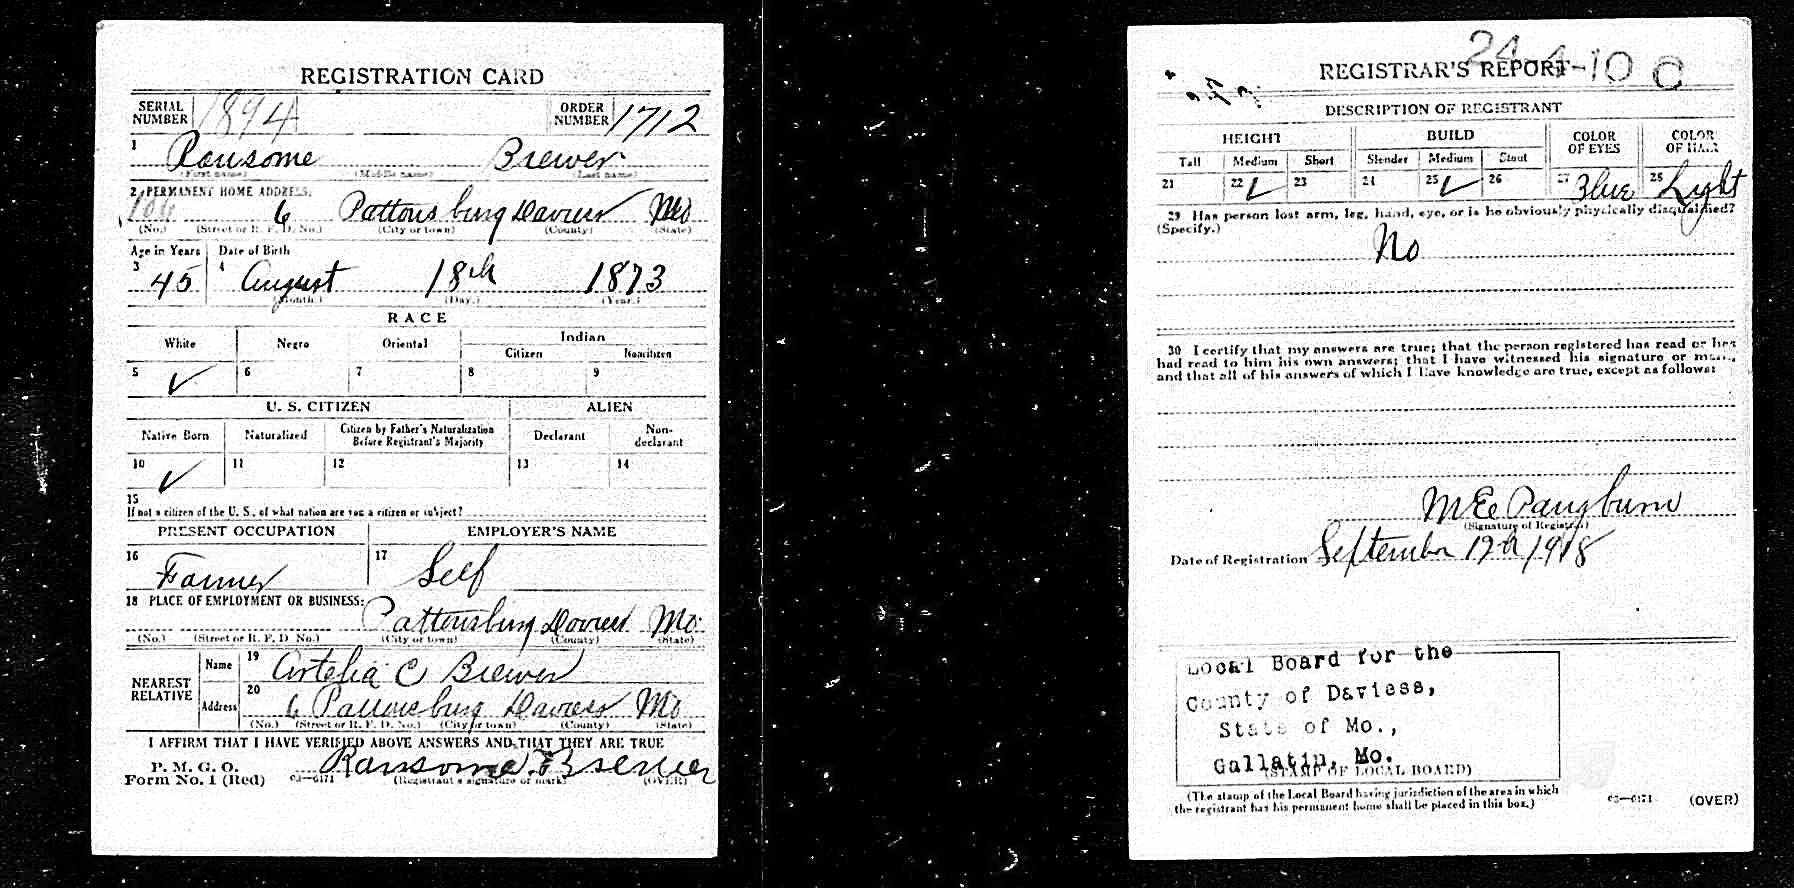 REGISTRATION CARD
SERIAL NUMBER 1894 ORDER NUMBER 1712
1 Ransome Brewer
(First name) (Middle name) (Last name)
2 PERMANENT HOME ADDRESS:
106 6 Pattonsburg Daviess Mo
(No.) (Street or R. F. D. No.) (City or town) (County) (State)
Age in Years Date of Birth
3 45 4 August 18th 1873
(Month.) (Day.) (Year.)
RACE
White Negro Oriental Indian
Citizen Noncitizen
5 ✓ 6 7 8 9
U. S. CITIZEN ALIEN
Native Born Naturalized Citizen by Father's Naturalization Before Registrant's Majority Declarant Non-declarant
10 ✓ 11 12 13 14
15
If not a citizen of the U. S., of what nation are you a citizen or subject?
PRESENT OCCUPATION EMPLOYER'S NAME
16 Farmer 17 Self
18 PLACE OF EMPLOYMENT OR BUSINESS:
Pattonsburg Daviess Mo
(No.) (Street or R. F. D. No.) (City or town) (County) (State)
NEAREST RELATIVE Name 19 Artelia C Brewer
Address 20 6 Pattonsburg Daviess Mo
(No.) (Street or R. F. D. No.) (City or town) (County) (State)
I AFFIRM THAT I HAVE VERIFIED ABOVE ANSWERS AND THAT THEY ARE TRUE
P. M. G. O.
Form No. 1 (Red) 03—6171 Ransome Brewer
(Registrant's signature or mark) (OVER)
24-4-10 C
REGISTRAR'S REPORT
DESCRIPTION OF REGISTRANT
HEIGHT BUILD COLOR OF EYES COLOR OF HAIR
Tall Medium Short Slender Medium Stout
21 22 ✓ 23 24 25 ✓ 26 27 Blue 28 Light
29 Has person lost arm, leg, hand, eye, or is he obviously physically disqualified?
(Specify.)
No
30 I certify that my answers are true; that the person registered has read or has
had read to him his own answers; that I have witnessed his signature or mark,
and that all of his answers of which I have knowledge are true, except as follows:
M E Pangburn
(Signature of Registrar)
Date of Registration September 12th 1918
Local Board for the
County of Daviess,
State of Mo.,
Gallatin, Mo.
(STAMP OF LOCAL BOARD)
(The stamp of the Local Board having jurisdiction of the area in which
the registrant has his permanent home shall be placed in this box.)
03—6171 (OVER)